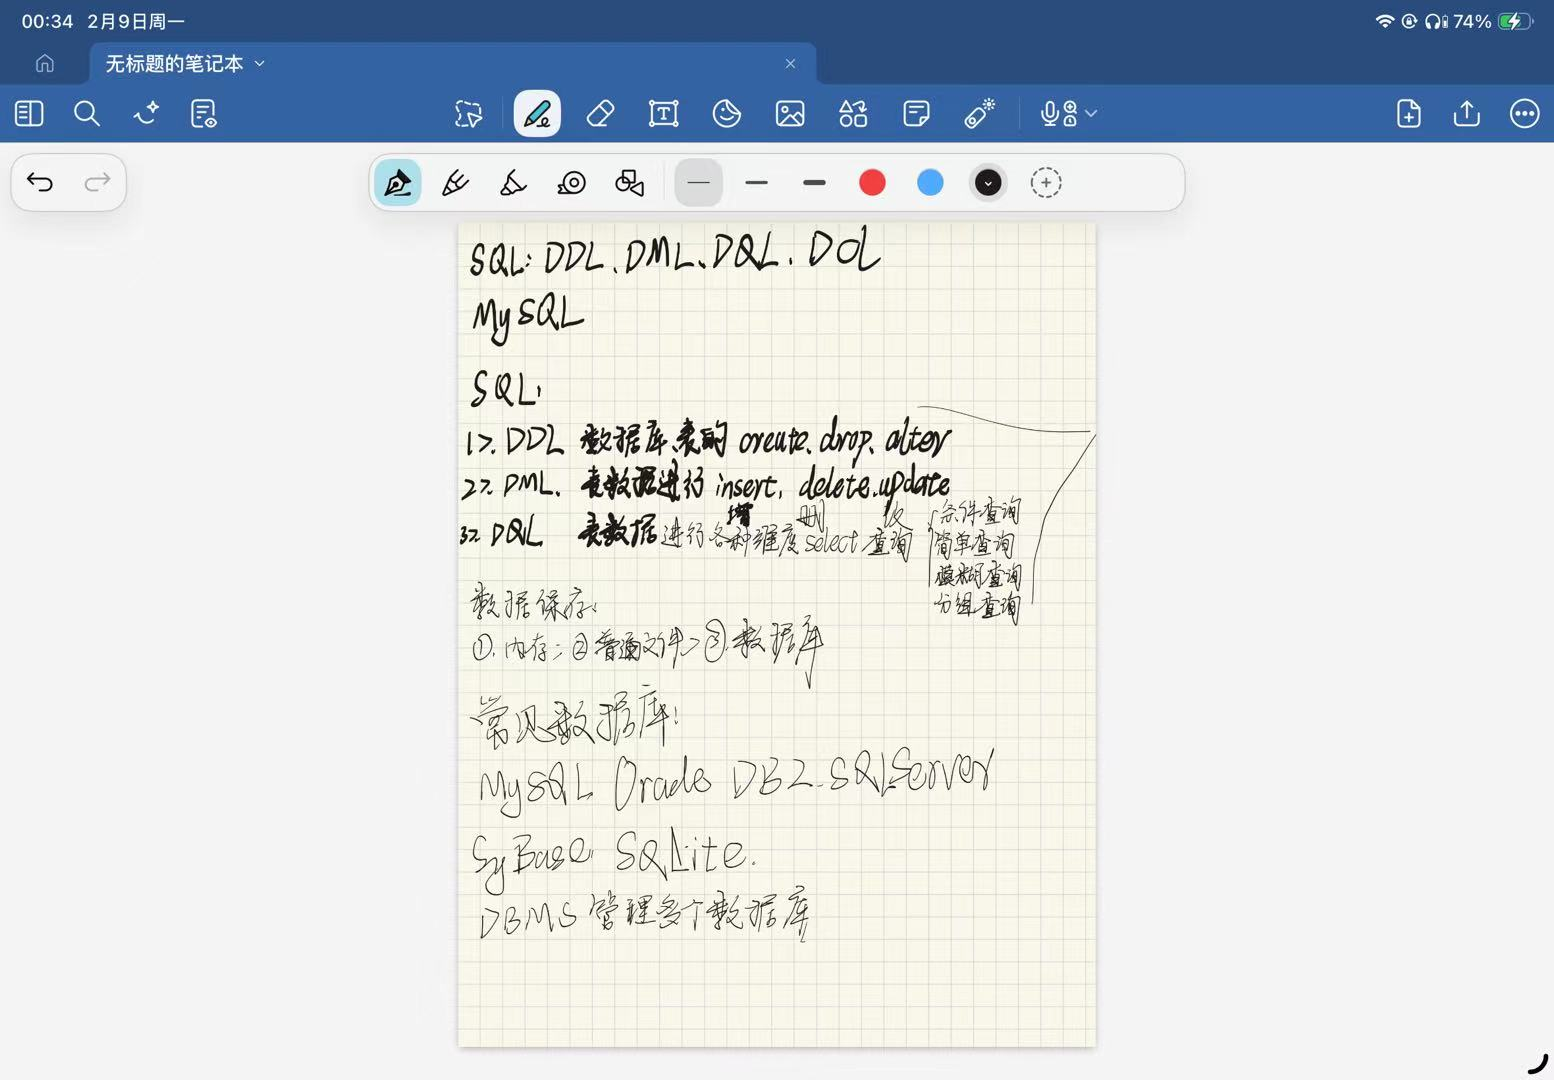 00:34 2月9日周一
74%
无标题的笔记本
SQL: DDL、DML、DQL、DCL
MySQL
SQL:
1>. DDL 数据库、表的 create、drop、alter
2>. DML. 表数据进行 insert、delete、update
增 删 改
3> DQL 表数据进行各种维度 select 查询
条件查询
简单查询
模糊查询
分组查询
数据保存:
①. 内存; ②普通文件; ③. 数据库
常见数据库:
MySQL Oracle DB2. SQLServer
SyBase SQLite.
DBMS 管理多个数据库